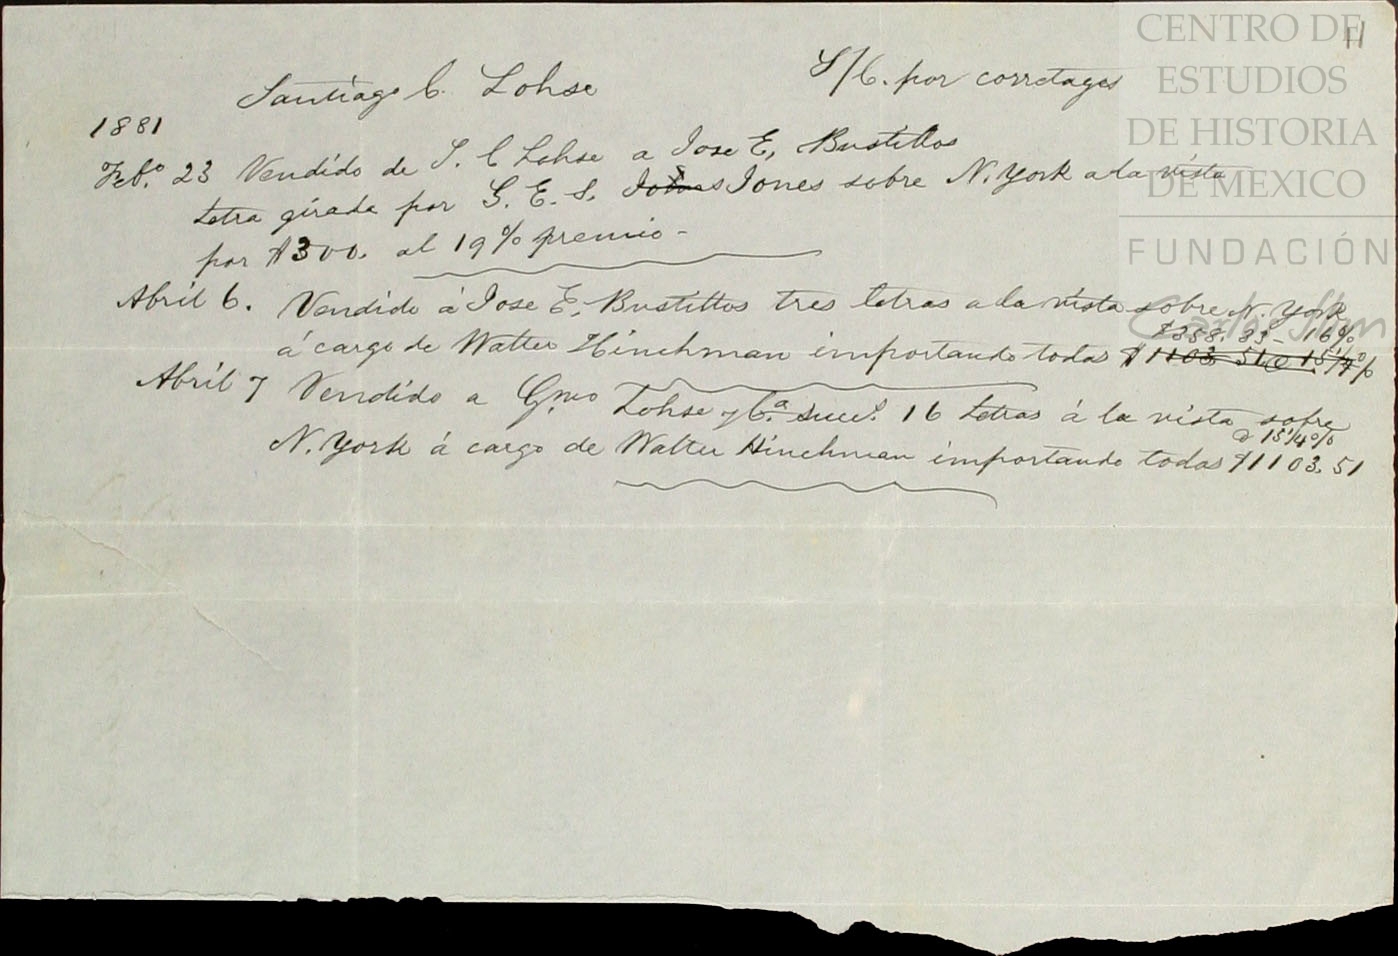 11
Santiago C. Lohse S/C. por corretages
1881
Feb.º 23 Vendido de S. C Lohse a Jose E, Bustillos
Letra girada por G. E. S. Jones sobre N. York a la vista
por $300. al 19% premio -
Abril 6. Vendido á Jose E, Bustillos tres letras a la vista sobre N. York
$358. 33 - 16%
á cargo de Walter Hinchman importando todas $1103 51 @ 15 1/4 %
Abril 7 Vendido a Gmo Lohse y Cª. suce.s 16 Letras á la vista sobre
@ 15 1/4 %
N. York á cargo de Walter Hinchman importando todas $1103. 51
CENTRO DE
ESTUDIOS
DE HISTORIA
DE MEXICO
FUNDACIÓN
Carlos Slim